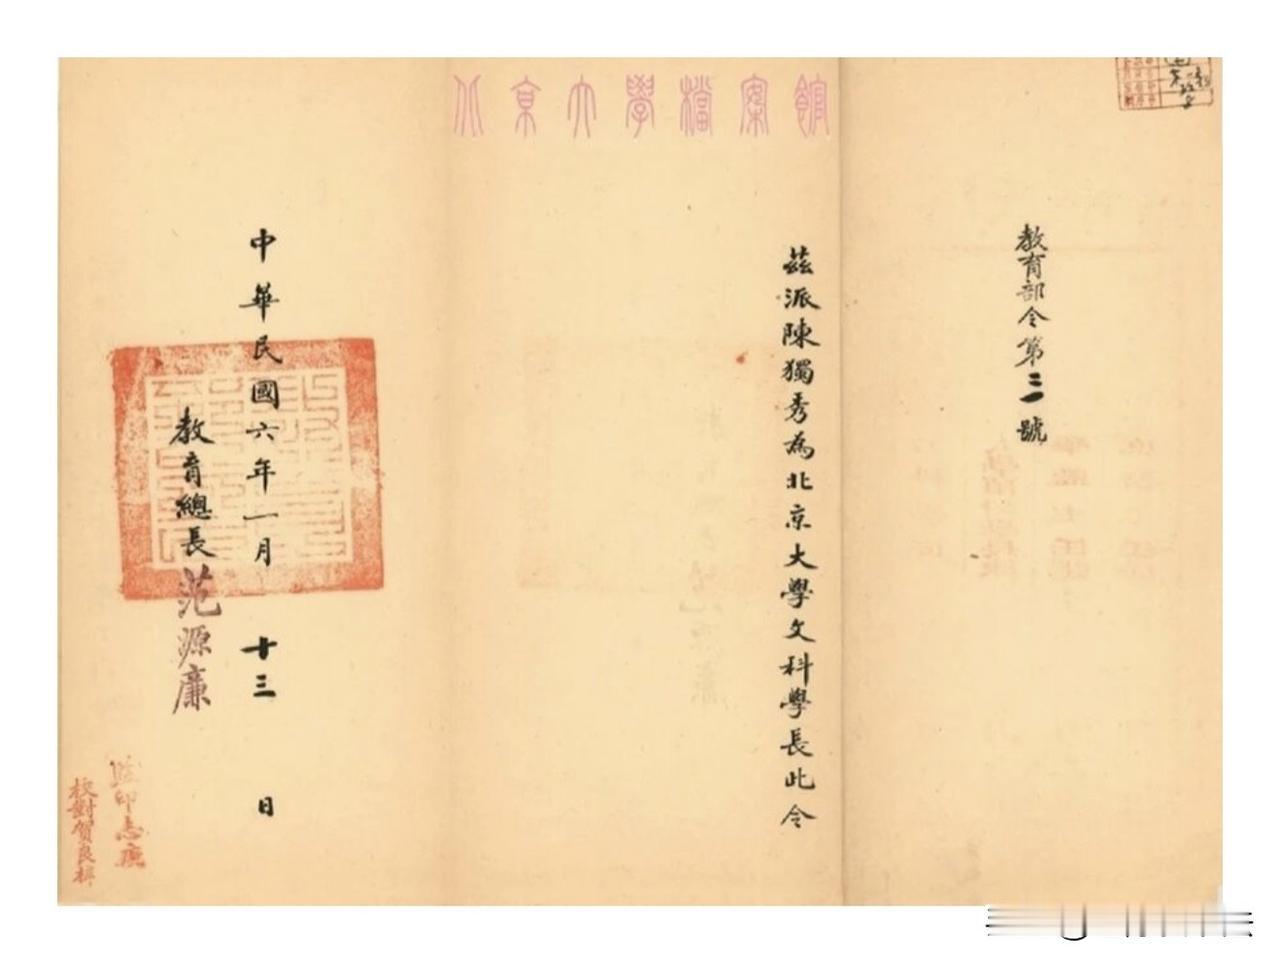 北京大學檔案館
教育部令第三號
茲派陳獨秀為北京大學文科學長此令
中華民國六年一月十三日
教育總長范源廉
監印志廉
校對賀良樸